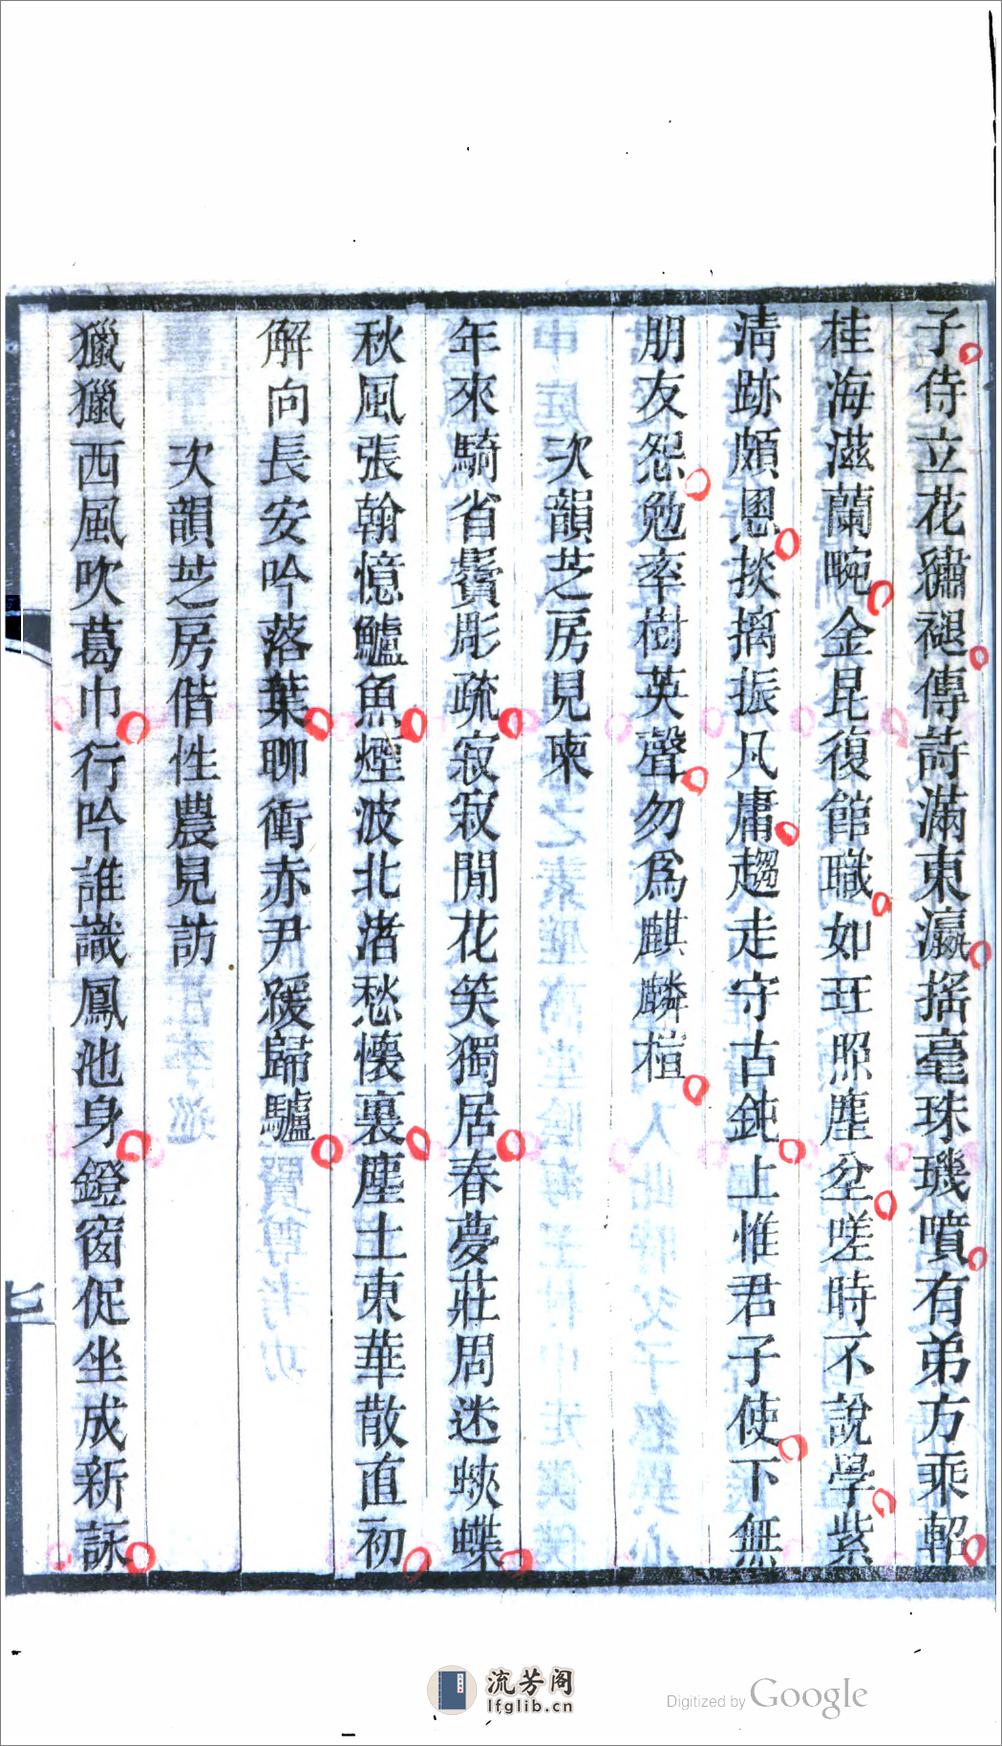 子侍立花貓褪傳詩滿東瀛搖毫珠璣噴有弟方乘軺
桂海滋蘭畹金昆復館職如玨照塵坌嗟時不說學紫
清跡頗恩掞摛振凡庸趨走守古鈍上惟君子使下無
朋友怨勉率樹英聲勿為麒麟楦
次韻芝房見柬
年來騎省鬢彫疏寂寂閒花笑獨居春夢莊周迷蛺蝶
秋風張翰憶鱸魚煙波北渚愁懷裏塵土東華散直初
解向長安吟落葉聊衝赤尹緩歸驢
次韻芝房偕性農見訪
獵獵西風吹葛巾行吟誰識鳳池身鐙窗促坐成新詠
七
流芳阁
lfglib.cn
Digitized by Google